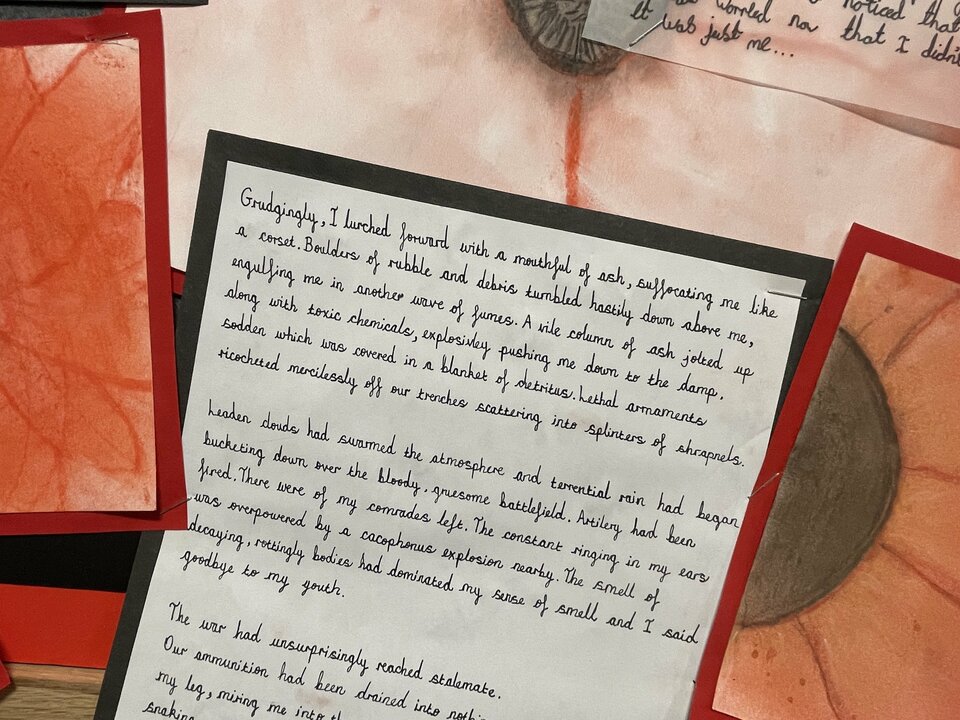 noticed that
It worried now that I didn't
was just me...
Grudgingly, I lurched forward with a mouthful of ash, suffocating me like
a corset. Boulders of rubble and debris tumbled hastily down above me,
engulfing me in another wave of fumes. A vile column of ash jolted up
along with toxic chemicals, explosivley pushing me down to the damp,
sodden which was covered in a blanket of detritus. Lethal armaments
ricocheted mercilessly off our trenches scattering into splinters of shrapnels.
Leaden clouds had swarmed the atmosphere and terrential rain had began
bucketing down over the bloody, gruesome battlefield. Artilery had been
fired. There were of my comrades left. The constant ringing in my ears
was overpowered by a cacophonus explosion nearby. The smell of
decaying, rottingly bodies had dominated my sense of smell and I said
goodbye to my youth.
The war had unsurprisingly reached stalemate.
Our ammunition had been drained into
my leg, miring me into